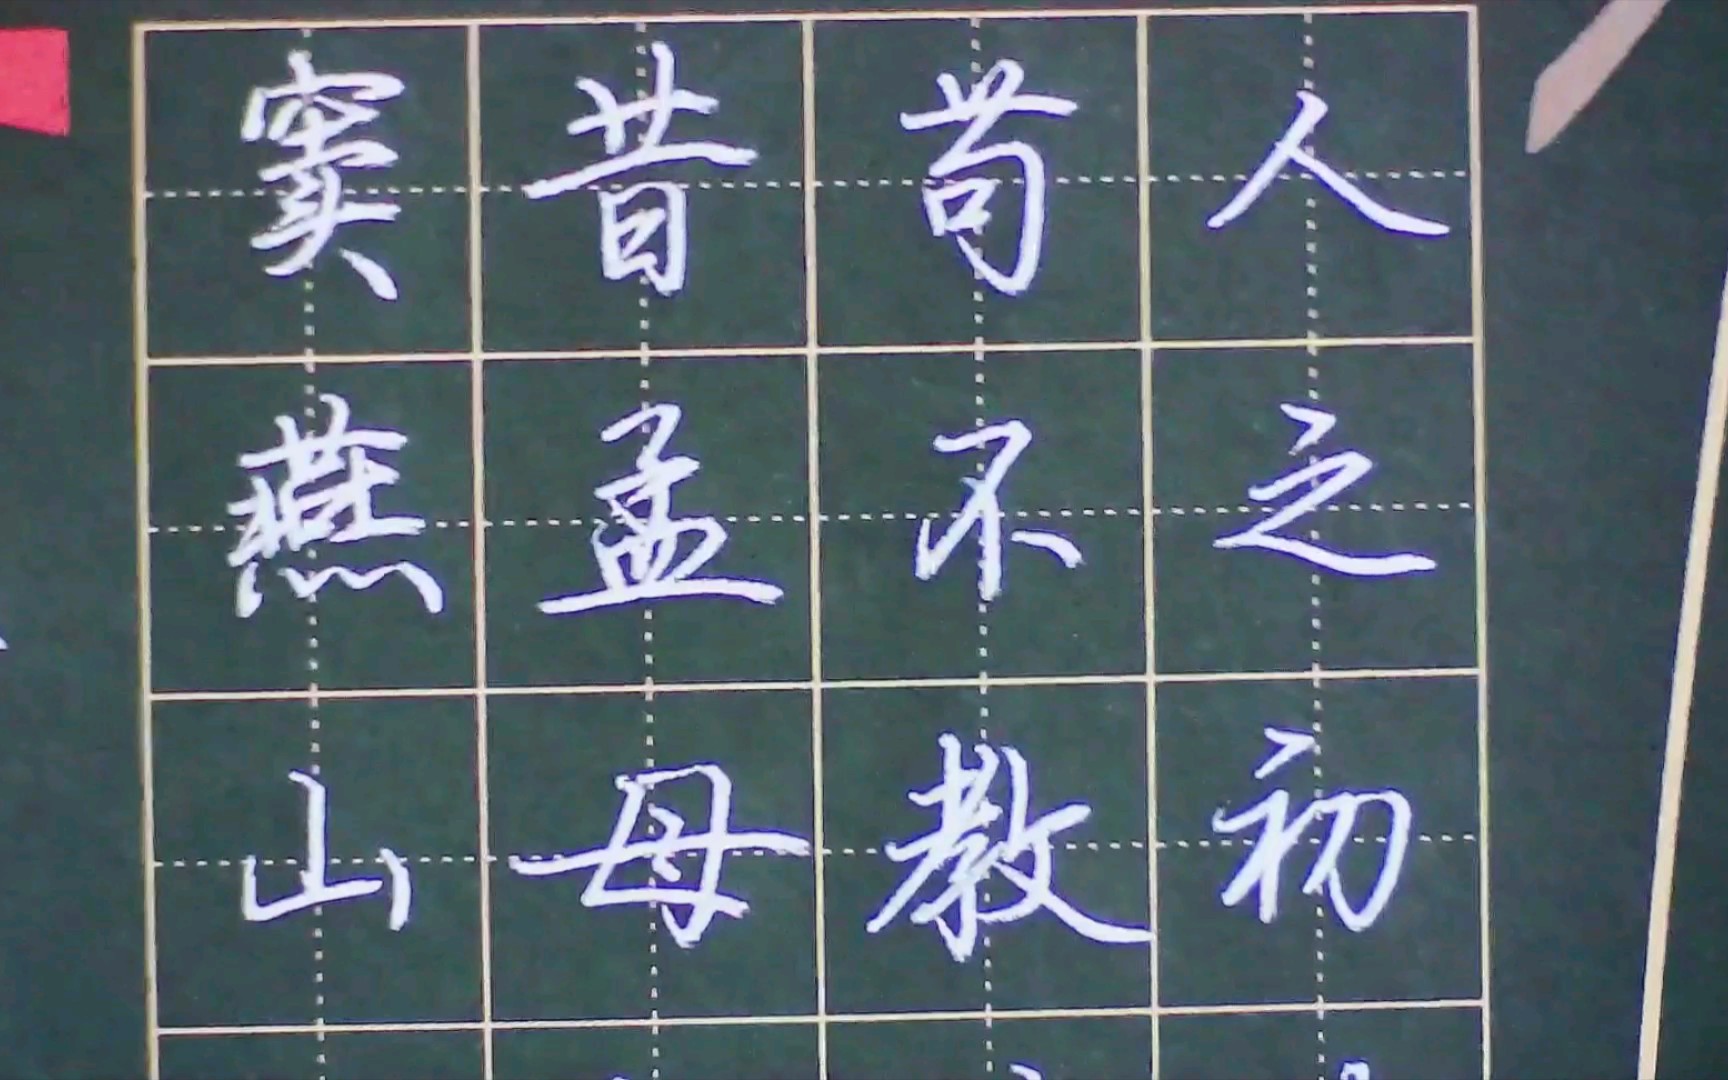 人之初
苟不教
昔孟母
窦燕山